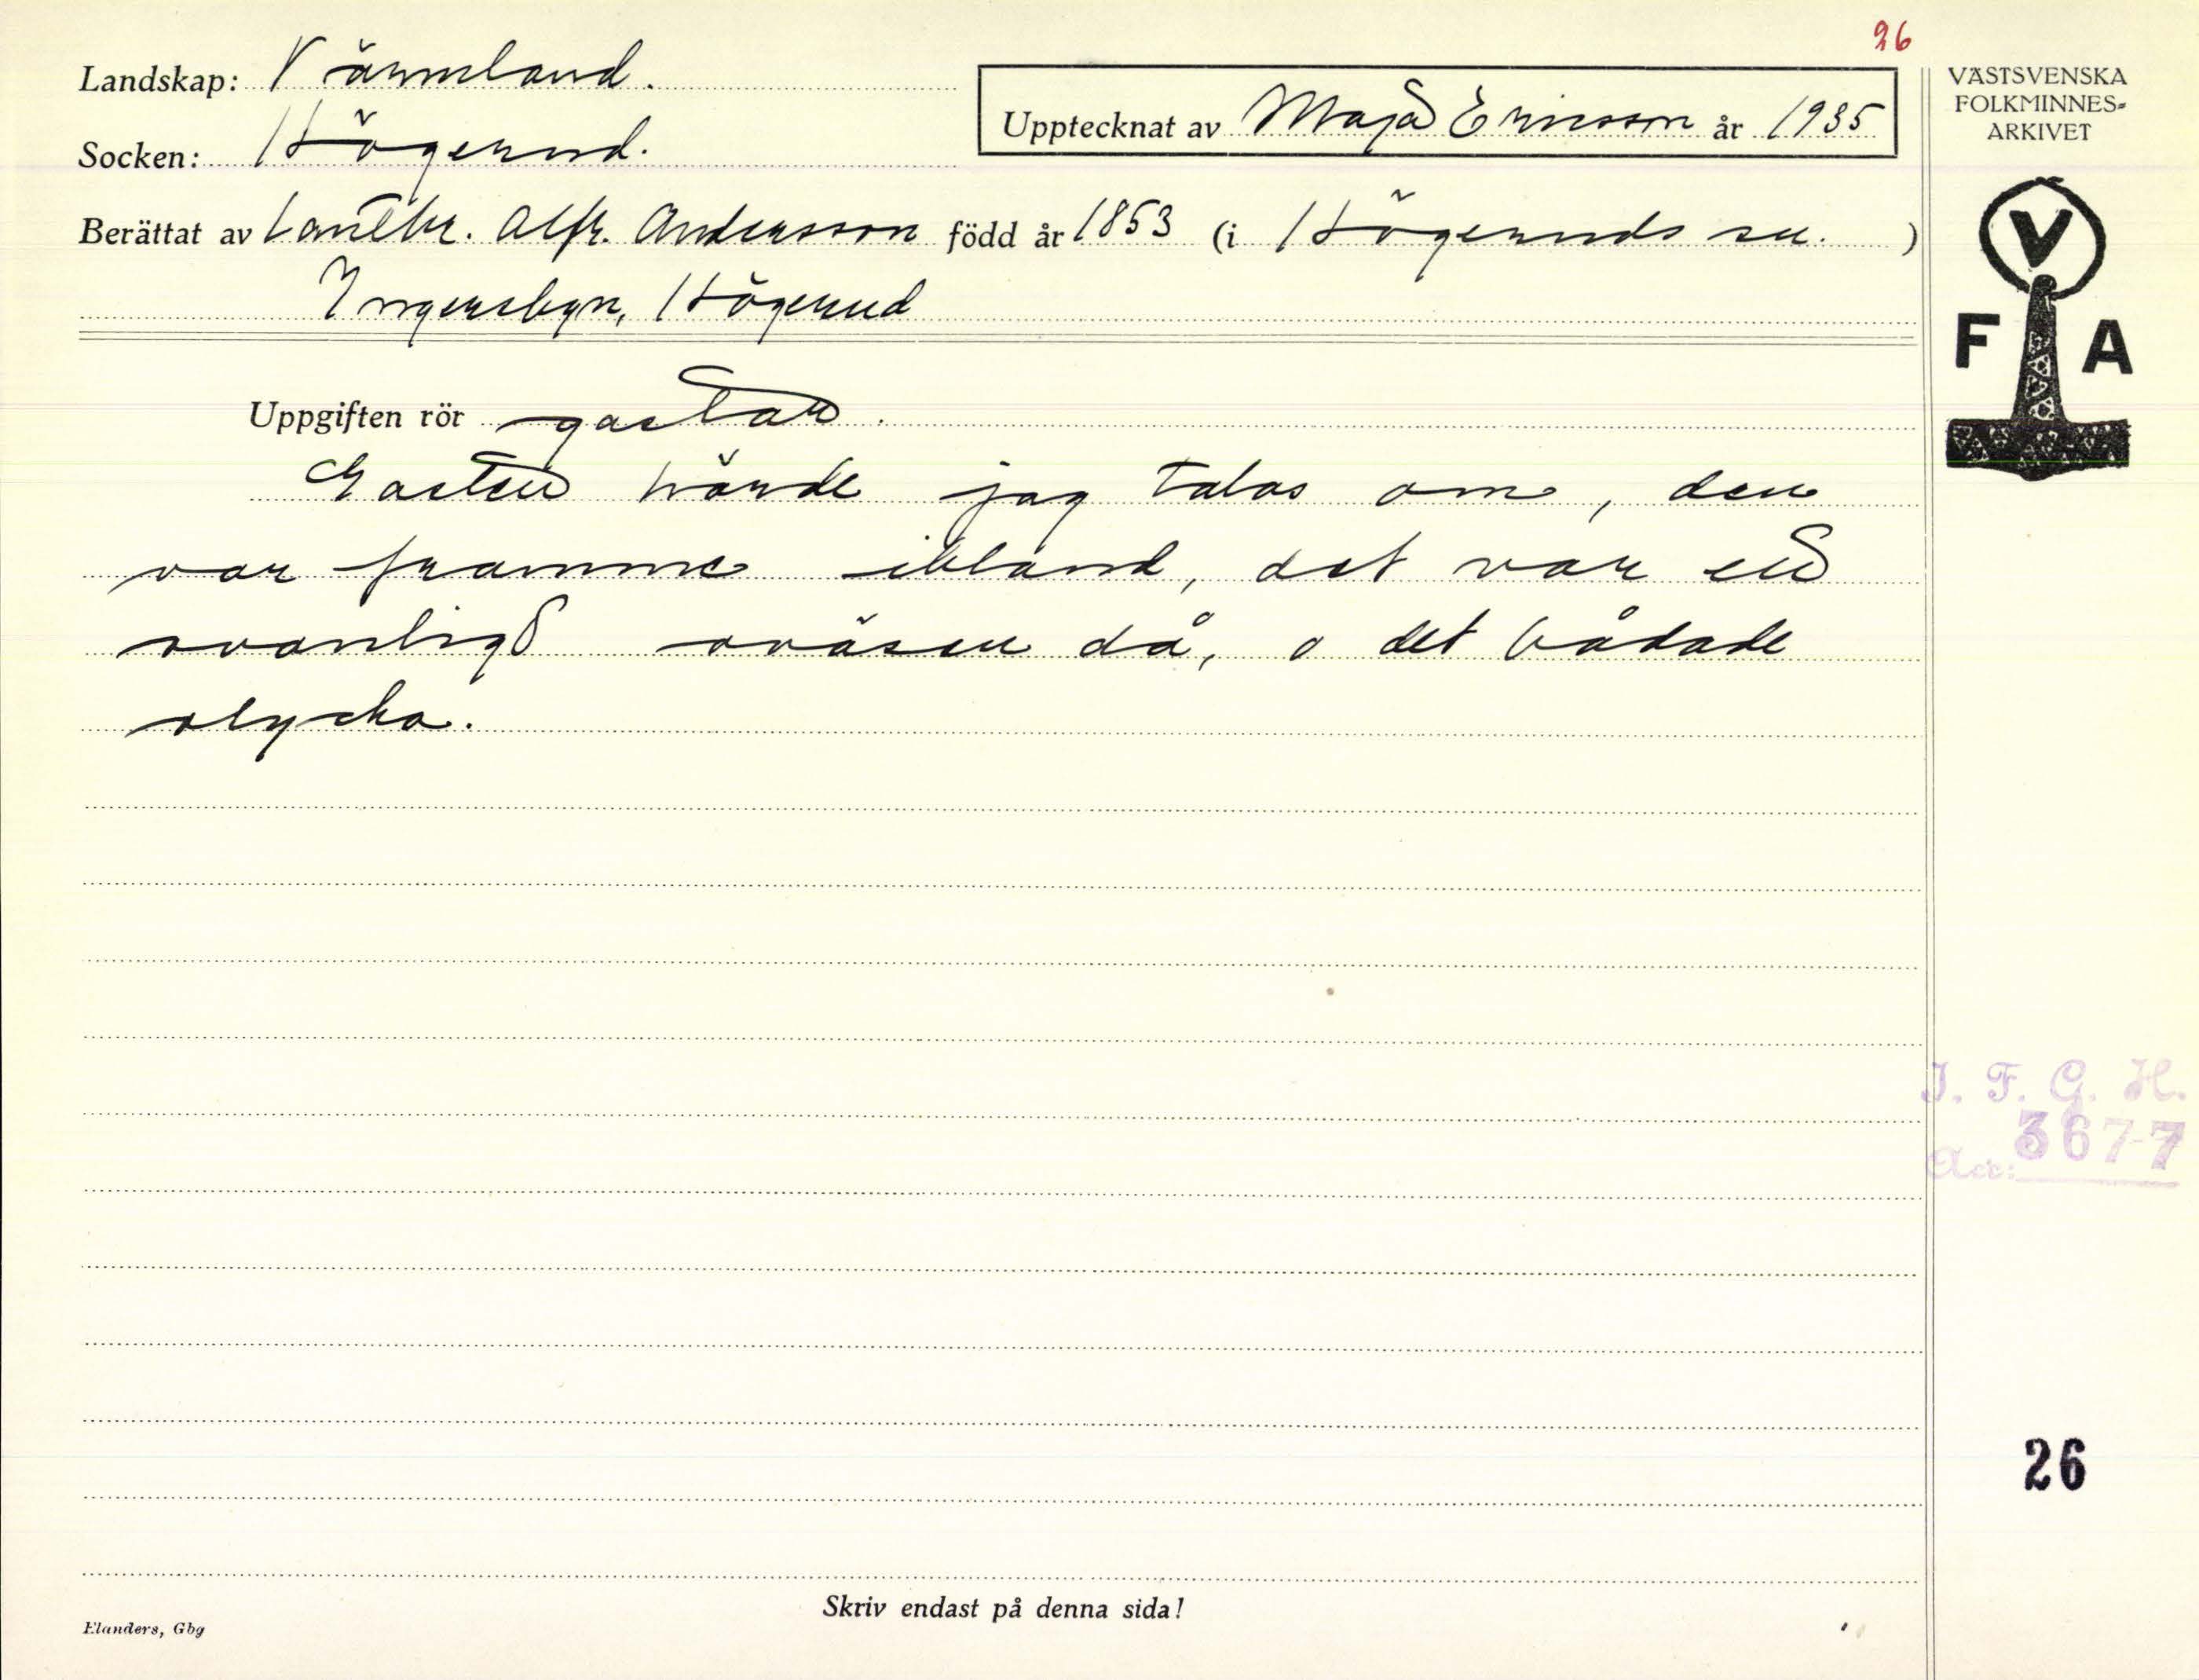 26
Landskap: Värmland.
Upptecknat av Maja Ericsson år 1935
Socken: Högerud.
Berättat av Lantbr. Alfr. Andersson född år 1853 (i Högeruds sn. )
Ingersbyn, Högerud
Uppgiften rör gastar.
Gasten hörde jag talas om, den
var framme ibland, det var ett
ovanligt oväsen då, o det bådade
olycka.
VÄSTSVENSKA
FOLKMINNES-
ARKIVET
V
F A
I. F. G. H.
Acc: 3677
26
Skriv endast på denna sida!
Elanders, Gbg